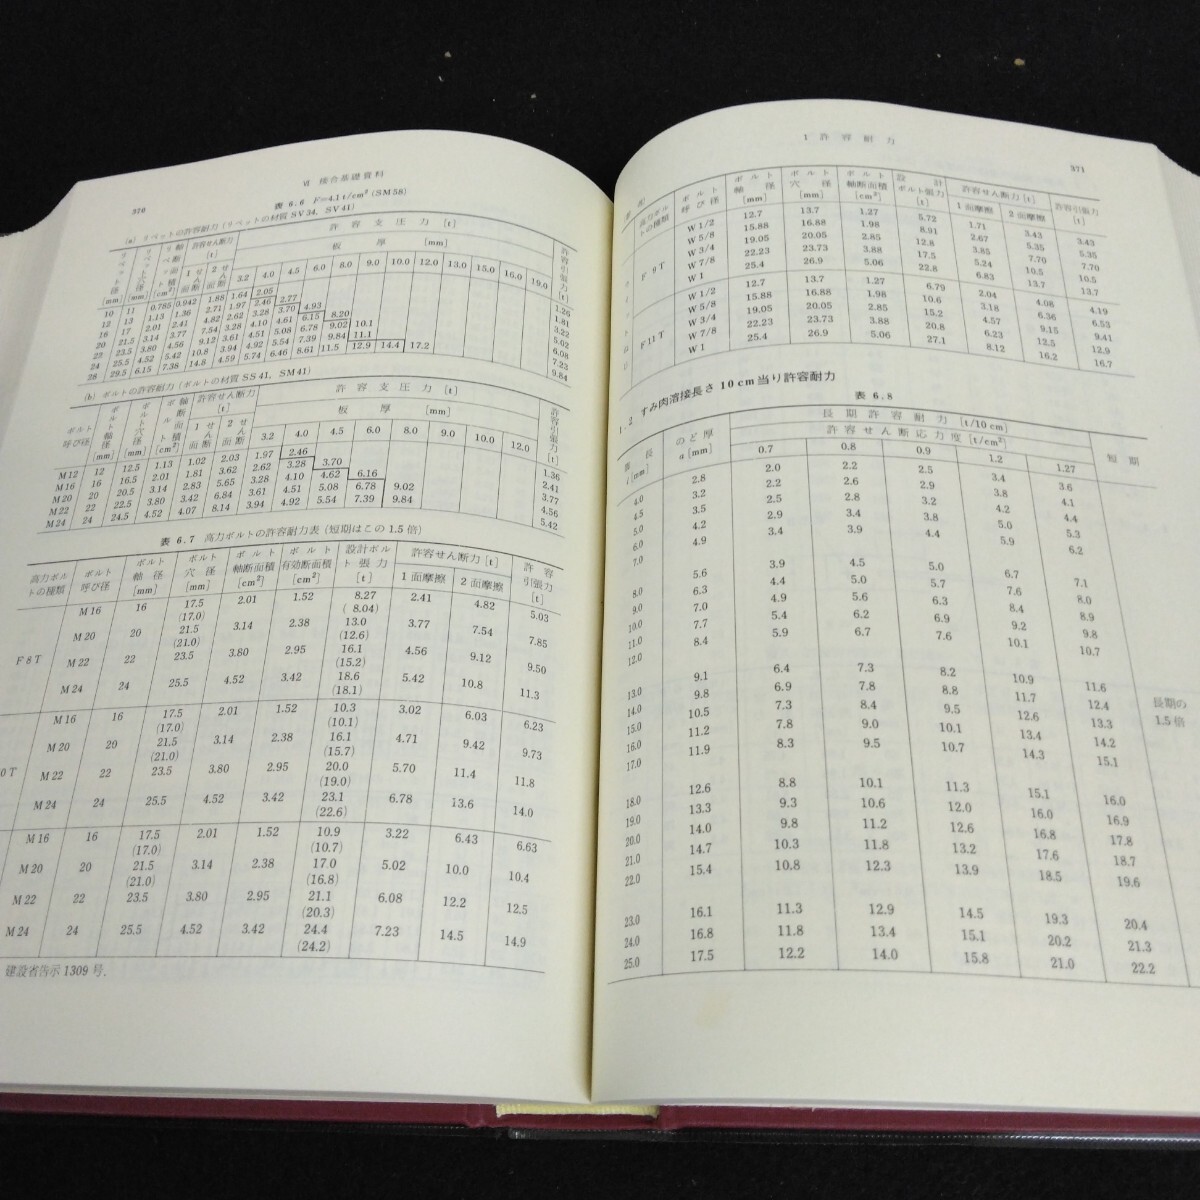 370
Ⅵ 接合基礎資料
表 6.6 F=4.1 t/cm² (SM58)
(a) リベットの許容耐力 (リベットの材質 SV34, SV41)
許容せん断力 [t]
許 容 支 圧 力 [t]
板 厚 [mm]
3.2 4.0 4.5 6.0 8.0 9.0 10.0 12.0 13.0 15.0 16.0 19.0
10 11 0.785 0.942 1.88 1.64 2.05 1.26
12 13 1.13 1.36 2.71 1.97 2.46 2.77 1.81
16 17 2.01 2.41 4.82 2.62 3.28 3.70 4.93 3.22
20 21.5 3.14 3.77 7.54 3.28 4.10 4.61 6.15 8.20 5.02
23.5 3.80 4.56 9.12 3.61 4.51 5.08 6.78 9.02 10.1 6.08
25.5 4.52 5.42 10.8 3.94 4.92 5.54 7.39 9.84 11.1 7.23
28 29.5 6.15 7.38 14.8 4.59 5.74 6.46 8.61 11.5 12.9 14.4 17.2 9.84
(b) ボルトの許容耐力 (ボルトの材質 SS41, SM41)
ボルト呼び径
ボルト軸径 [mm]
ボルト穴径 [mm]
軸断面積 [cm²]
許容せん断力 [t]
1せん面断
2せん面断
許 容 支 圧 力 [t]
板 厚 [mm]
許容引張力 [t]
3.2 4.0 4.5 6.0 8.0 9.0 10.0 12.0
M12 12 12.5 1.13 1.02 2.03 1.97 2.46 1.36
M16 16 16.5 2.01 1.81 3.62 2.62 3.28 3.70 2.41
M20 20 20.5 3.14 2.83 5.65 3.28 4.10 4.62 6.16 3.77
M22 22 22.5 3.80 3.42 6.84 3.61 4.51 5.08 6.78 9.02 4.56
M24 24 24.5 4.52 4.07 8.14 3.94 4.92 5.54 7.39 9.84 5.42
表 6.7 高力ボルトの許容耐力表 (短期はこの 1.5 倍)
高力ボルトの種類
ボルト呼び径
ボルト軸径 [mm]
ボルト穴径 [mm]
ボルト軸断面積 [cm²]
ボルト有効断面積 [cm²]
設計ボルト張力 [t]
許容せん断力 [t]
1面摩擦 2面摩擦
許容引張力 [t]
F8T
M16 16 17.5 (17.0) 2.01 1.52 8.27 (8.04) 2.41 4.82 5.03
M20 20 21.5 (21.0) 3.14 2.38 13.0 (12.6) 3.77 7.54 7.85
M22 22 23.5 3.80 2.95 16.1 (15.2) 4.56 9.12 9.50
M24 24 25.5 4.52 3.42 18.6 (18.1) 5.42 10.8 11.3
0T
M16 16 17.5 (17.0) 2.01 1.52 10.3 (10.1) 3.02 6.03 6.23
M20 20 21.5 (21.0) 3.14 2.38 16.1 (15.7) 4.71 9.42 9.73
M22 22 23.5 3.80 2.95 20.0 (19.0) 5.70 11.4 11.8
M24 24 25.5 4.52 3.42 23.1 (22.6) 6.78 13.6 14.0
M16 16 17.5 (17.0) 2.01 1.52 10.9 (10.7) 3.22 6.43 6.63
M20 20 21.5 (21.0) 3.14 2.38 17.0 (16.8) 5.02 10.0 10.4
M22 22 23.5 3.80 2.95 21.1 (20.3) 6.08 12.2 12.5
M24 24 25.5 4.52 3.42 24.4 (24.2) 7.23 14.5 14.9
建設省告示 1309 号.
1 許 容 耐 力
371
高力ボルトの種類
ボルト呼び径
ボルト軸径 [mm]
ボルト穴径 [mm]
ボルト軸断面積 [cm²]
設計ボルト張力 [t]
許容せん断力 [t]
1面摩擦 2面摩擦
許容引張力 [t]
F9T
W1/2 12.7 13.7 1.27 5.72 1.71 3.43 3.43
W5/8 15.88 16.88 1.98 8.91 2.67 5.35 5.35
W3/4 19.05 20.05 2.85 12.8 3.85 7.70 7.70
W7/8 22.23 23.73 3.88 17.5 5.24 10.5 10.5
W1 25.4 26.9 5.06 22.8 6.83 13.7 13.7
F11T
W1/2 12.7 13.7 1.27 6.79 2.04 4.08 4.19
W5/8 15.88 16.88 1.98 10.6 3.18 6.36 6.53
W3/4 19.05 20.05 2.85 15.2 4.57 9.15 9.41
W7/8 22.23 23.73 3.88 20.8 6.23 12.5 12.9
W1 25.4 26.9 5.06 27.1 8.12 16.2 16.7
1.2 すみ肉溶接長さ 10 cm 当り許容耐力
表 6.8
脚長 [mm]
のど厚 a [mm]
長期許容耐力 [t/10 cm]
許容せん断応力度 [t/cm²]
短期
0.7 0.8 0.9 1.2 1.27
4.0 2.8 2.0 2.2 2.5 3.4 3.6
4.5 3.2 2.2 2.6 2.9 3.8 4.1
5.0 3.5 2.5 2.8 3.2 4.2 4.4
6.0 4.2 2.9 3.4 3.8 5.0 5.3
7.0 4.9 3.4 3.9 4.4 5.9 6.2
8.0 5.6 3.9 4.5 5.0 6.7 7.1
9.0 6.3 4.4 5.0 5.7 7.6 8.0
10.0 7.0 4.9 5.6 6.3 8.4 8.9
11.0 7.7 5.4 6.2 6.9 9.2 9.8
12.0 8.4 5.9 6.7 7.6 10.1 10.7
13.0 9.1 6.4 7.3 8.2 10.9 11.6
14.0 9.8 6.9 7.8 8.8 11.7 12.4
15.0 10.5 7.3 8.4 9.5 12.6 13.3
16.0 11.2 7.8 9.0 10.1 13.4 14.2
17.0 11.9 8.3 9.5 10.7 14.3 15.1
長期の1.5倍
18.0 12.6 8.8 10.1 11.3 15.1 16.0
19.0 13.3 9.3 10.6 12.0 16.0 16.9
20.0 14.0 9.8 11.2 12.6 16.8 17.8
21.0 14.7 10.3 11.8 13.2 17.6 18.7
22.0 15.4 10.8 12.3 13.9 18.5 19.6
23.0 16.1 11.3 12.9 14.5 19.3 20.4
24.0 16.8 11.8 13.4 15.1 20.2 21.3
25.0 17.5 12.2 14.0 15.8 21.0 22.2